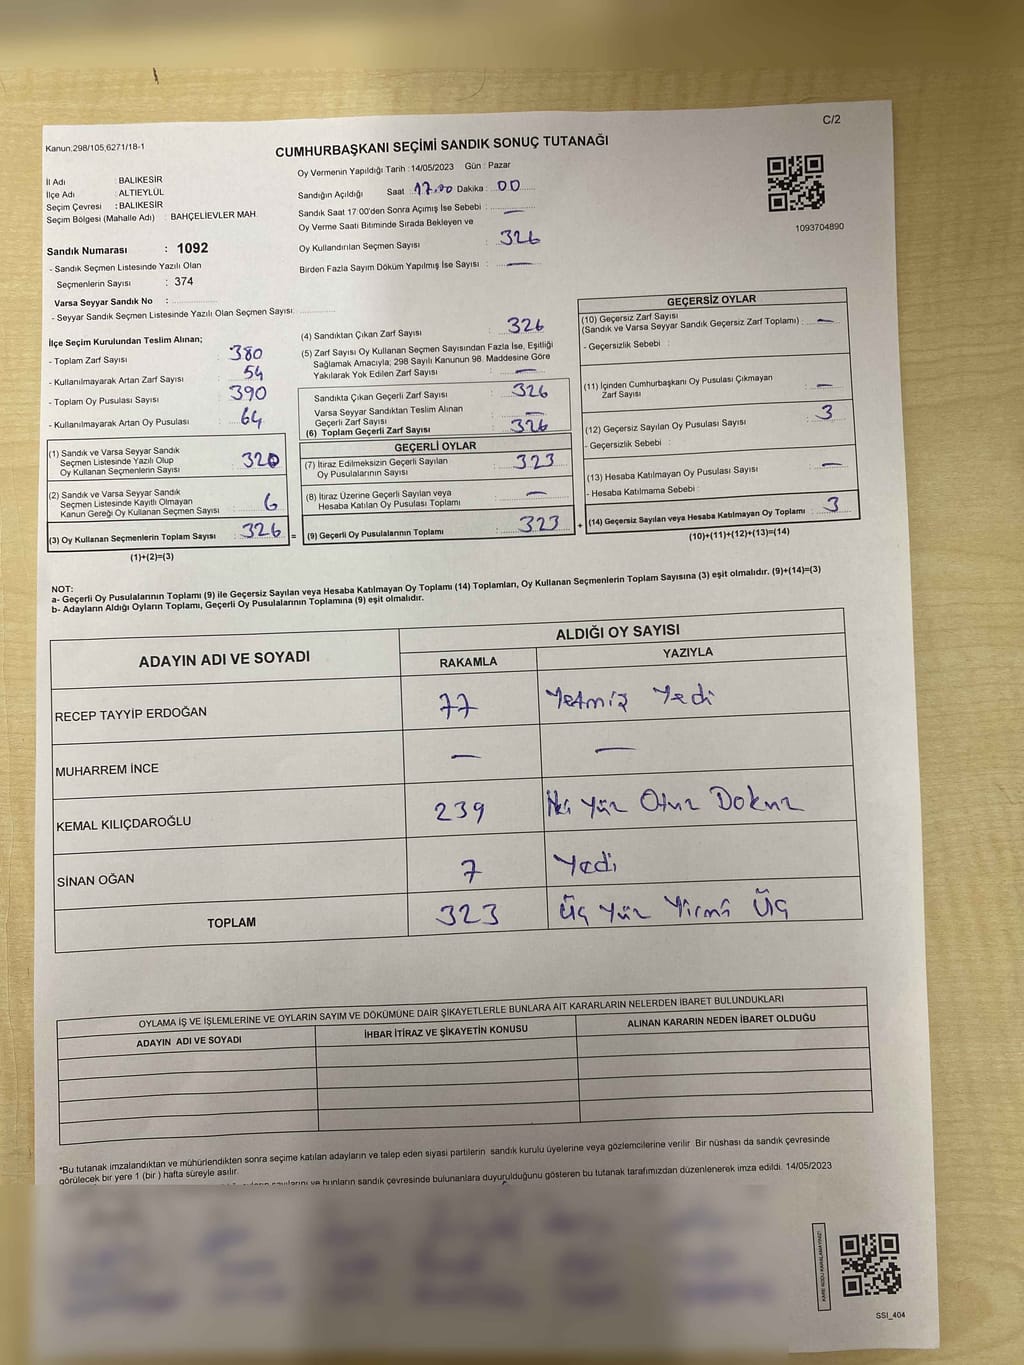 C/2
Kanun.298/105,6271/18-1
CUMHURBAŞKANI SEÇİMİ SANDIK SONUÇ TUTANAĞI
1093704890
İl Adı : BALIKESİR
İlçe Adı : ALTIEYLÜL
Seçim Çevresi : BALIKESİR
Seçim Bölgesi (Mahalle Adı) : BAHÇELİEVLER MAH.
Sandık Numarası : 1092
- Sandık Seçmen Listesinde Yazılı Olan
Seçmenlerin Sayısı : 374
Varsa Seyyar Sandık No :
- Seyyar Sandık Seçmen Listesinde Yazılı Olan Seçmen Sayısı:
Oy Vermenin Yapıldığı Tarih : 14/05/2023 Gün : Pazar
Sandığın Açıldığı Saat : 17.00 Dakika : 00
Sandık Saat 17:00'den Sonra Açımış İse Sebebi : —
Oy Verme Saati Bitiminde Sırada Bekleyen ve
Oy Kullandırılan Seçmen Sayısı : 326
Birden Fazla Sayım Döküm Yapılmış İse Sayısı : —
İlçe Seçim Kurulundan Teslim Alınan;
- Toplam Zarf Sayısı : 380
- Kullanılmayarak Artan Zarf Sayısı : 54
- Toplam Oy Pusulası Sayısı : 390
- Kullanılmayarak Artan Oy Pusulası : 64
(1) Sandık ve Varsa Seyyar Sandık
Seçmen Listesinde Yazılı Olup
Oy Kullanan Seçmenlerin Sayısı : 320
(2) Sandık ve Varsa Seyyar Sandık
Seçmen Listesinde Kayıtlı Olmayan
Kanun Gereği Oy Kullanan Seçmen Sayısı : 6
(3) Oy Kullanan Seçmenlerin Toplam Sayısı : 326 =
(1)+(2)=(3)
(4) Sandıktan Çıkan Zarf Sayısı : 326
(5) Zarf Sayısı Oy Kullanan Seçmen Sayısından Fazla İse, Eşitliği
Sağlamak Amacıyla; 298 Sayılı Kanunun 98. Maddesine Göre
Yakılarak Yok Edilen Zarf Sayısı : —
Sandıkta Çıkan Geçerli Zarf Sayısı : 326
Varsa Seyyar Sandıktan Teslim Alınan
Geçerli Zarf Sayısı : —
(6) Toplam Geçerli Zarf Sayısı : 326
GEÇERLİ OYLAR
(7) İtiraz Edilmeksizin Geçerli Sayılan
Oy Pusulalarının Sayısı : 323
(8) İtiraz Üzerine Geçerli Sayılan veya
Hesaba Katılan Oy Pusulası Toplamı : —
(9) Geçerli Oy Pusulalarının Toplamı : 323 +
GEÇERSİZ OYLAR
(10) Geçersiz Zarf Sayısı
(Sandık ve Varsa Seyyar Sandık Geçersiz Zarf Toplamı) : —
- Geçersizlik Sebebi :
(11) İçinden Cumhurbaşkanı Oy Pusulası Çıkmayan
Zarf Sayısı : —
(12) Geçersiz Sayılan Oy Pusulası Sayısı : 3
- Geçersizlik Sebebi :
(13) Hesaba Katılmayan Oy Pusulası Sayısı : —
- Hesaba Katılmama Sebebi :
(14) Geçersiz Sayılan veya Hesaba Katılmayan Oy Toplamı : 3
(10)+(11)+(12)+(13)=(14)
NOT:
a- Geçerli Oy Pusulalarının Toplamı (9) ile Geçersiz Sayılan veya Hesaba Katılmayan Oy Toplamı (14) Toplamları, Oy Kullanan Seçmenlerin Toplam Sayısına (3) eşit olmalıdır. (9)+(14)=(3)
b- Adayların Aldığı Oyların Toplamı, Geçerli Oy Pusulalarının Toplamına (9) eşit olmalıdır.
ADAYIN ADI VE SOYADI ALDIĞI OY SAYISI
RAKAMLA YAZIYLA
RECEP TAYYİP ERDOĞAN 77 Yetmiş Yedi
MUHARREM İNCE — —
KEMAL KILIÇDAROĞLU 239 İki Yüz Otuz Dokuz
SİNAN OĞAN 7 Yedi
TOPLAM 323 Üç Yüz Yirmi Üç
OYLAMA İŞ VE İŞLEMLERİNE VE OYLARIN SAYIM VE DÖKÜMÜNE DAİR ŞİKAYETLERLE BUNLARA AİT KARARLARIN NELERDEN İBARET BULUNDUKLARI
ADAYIN ADI VE SOYADI İHBAR İTİRAZ VE ŞİKAYETİN KONUSU ALINAN KARARIN NEDEN İBARET OLDUĞU
*Bu tutanak imzalandıktan ve mühürlendikten sonra seçime katılan adayların ve talep eden siyasi partilerin sandık kurulu üyelerine veya gözlemcilerine verilir. Bir nüshası da sandık çevresinde
görülecek bir yere 1 (bir) hafta süreyle asılır.
ve bunların sandık çevresinde bulunanlara duyurulduğunu gösteren bu tutanak tarafımızdan düzenlenerek imza edildi. 14/05/2023
SSI_404